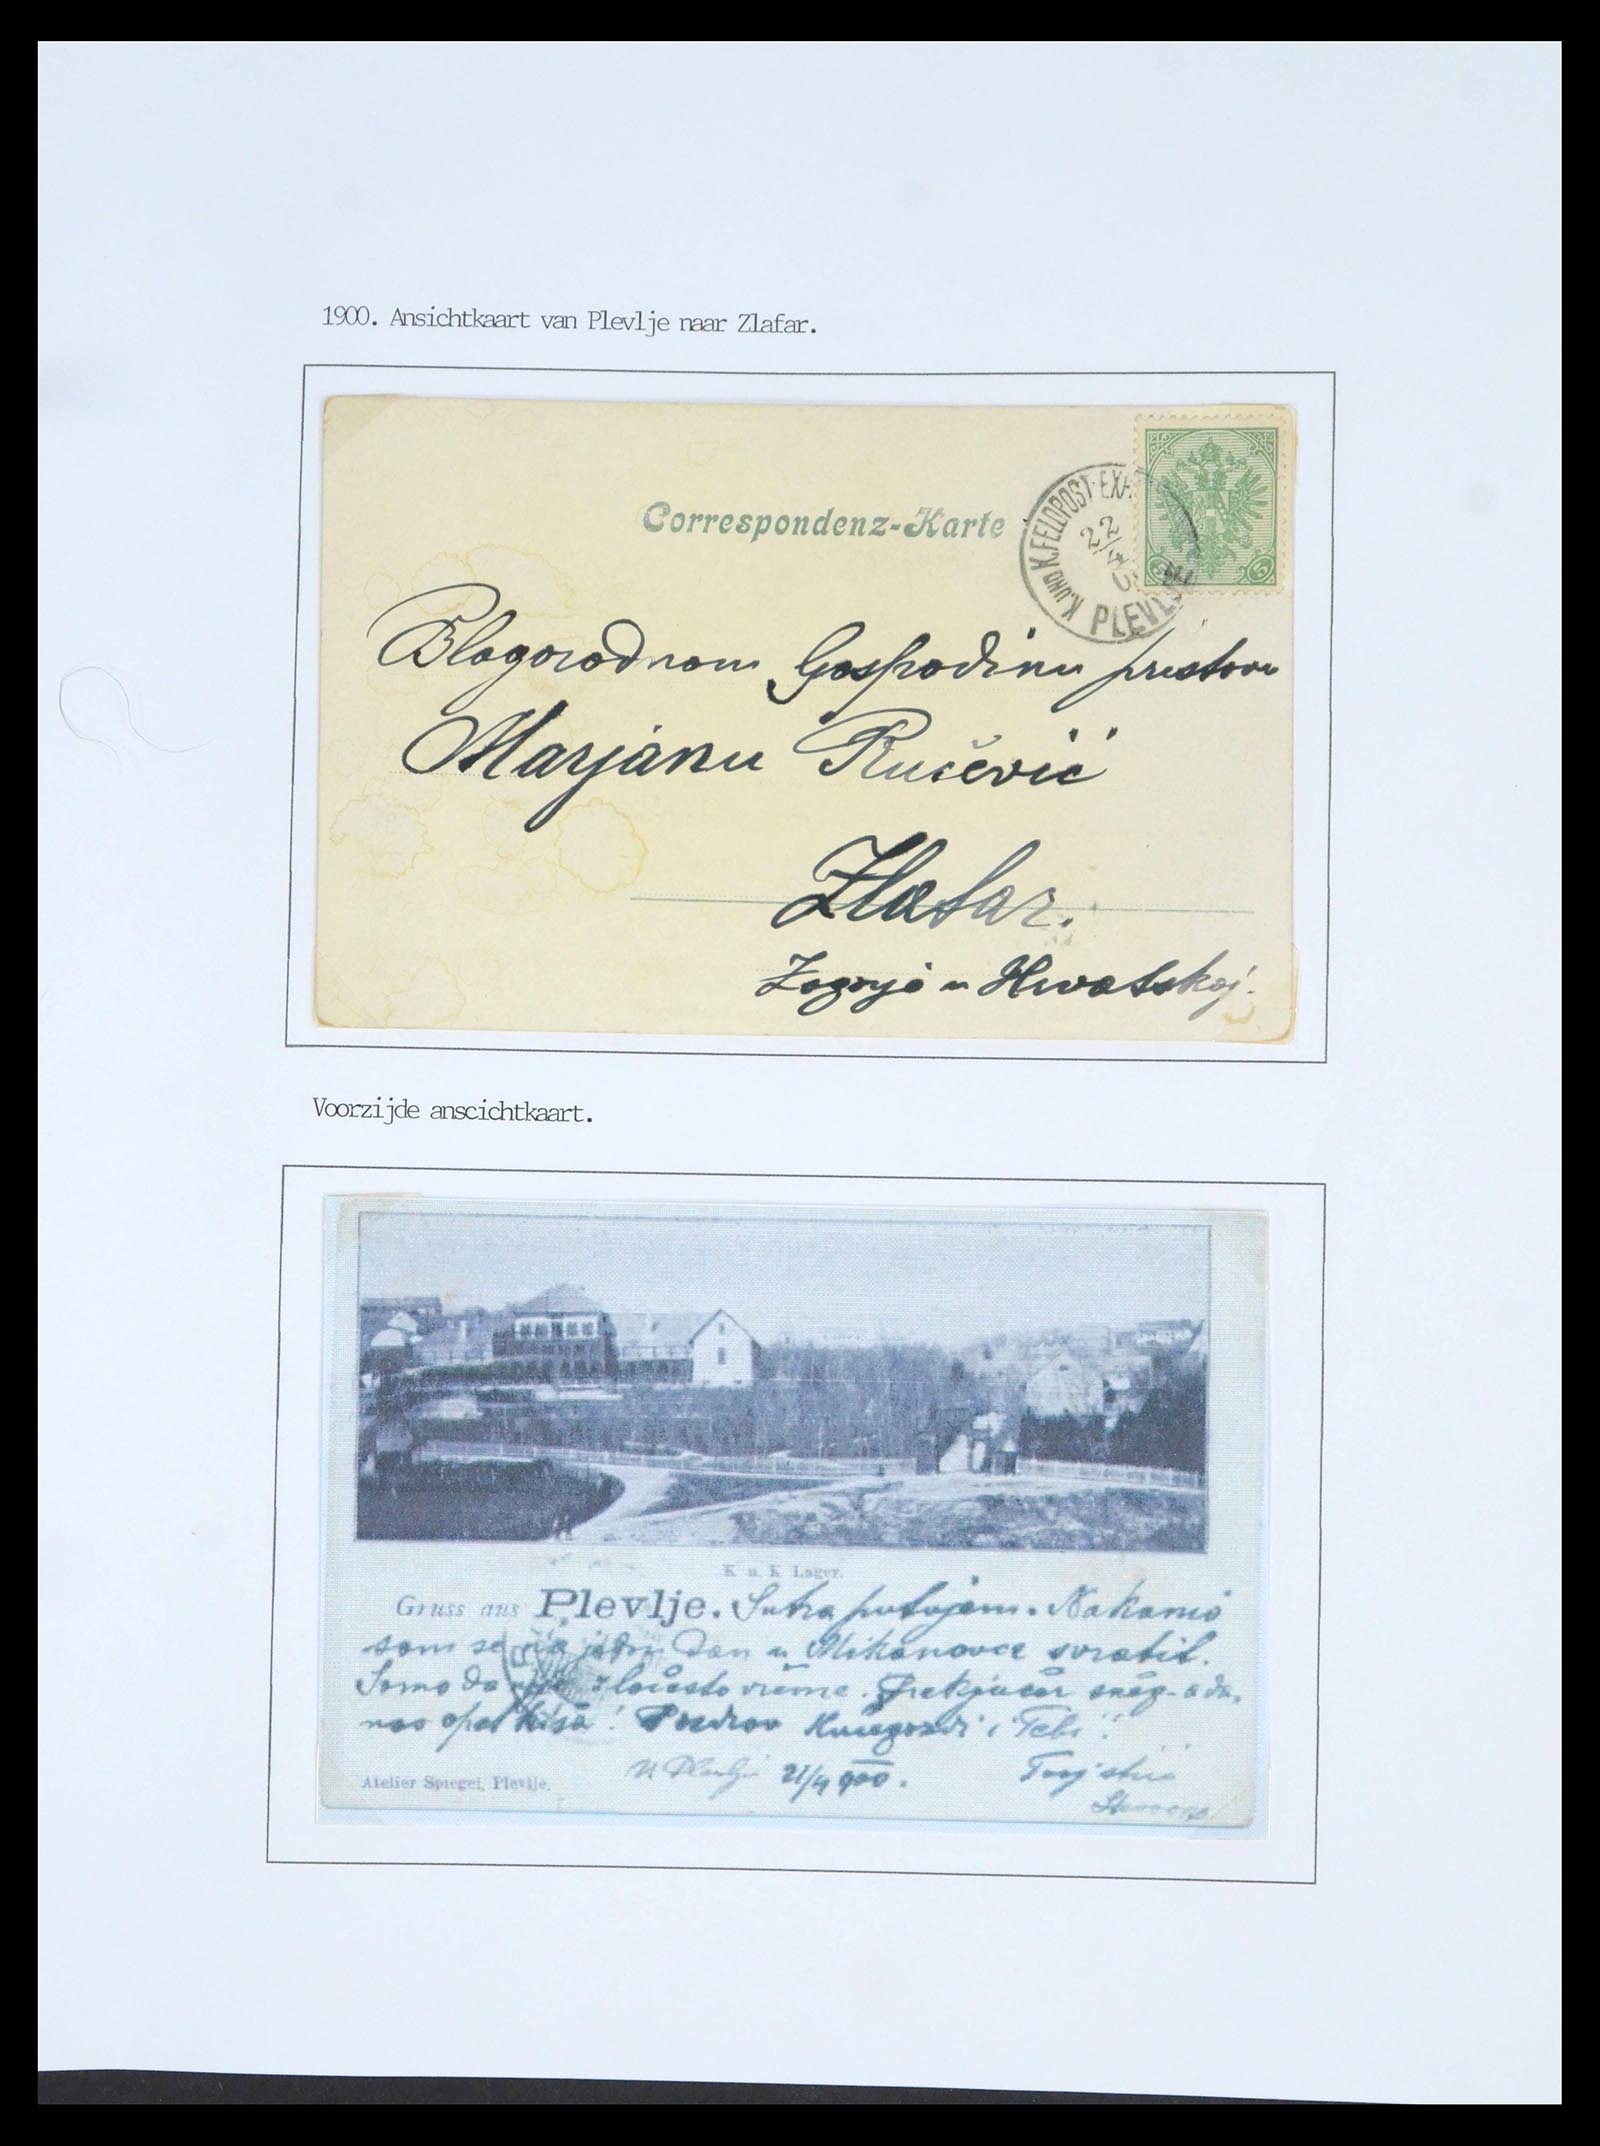 1900. Ansichtkaart van Plevlje naar Zlafar.
Correspondenz-Karte
K. UND K. FELDPOST-EXP.
22/4
PLEVLJE
5 5
Blagorodnom Gospodinu
Marjanu Ručević
Zlatar.
Zagorje u Hrvatskoj.
Voorzijde anscichtkaart.
K. u. K. Lager.
Gruss aus Plevlje. Sutra putujem. Nakanio
sam se na jedan dan u Mikanovce svratit.
Samo da nije zločesto vrieme. Prekjučer snieg - a da-
nas opet kiša! Pozdrav i Tebi!
21/4 900.
Atelier Spiegel, Plevlje.
Tvoj stric